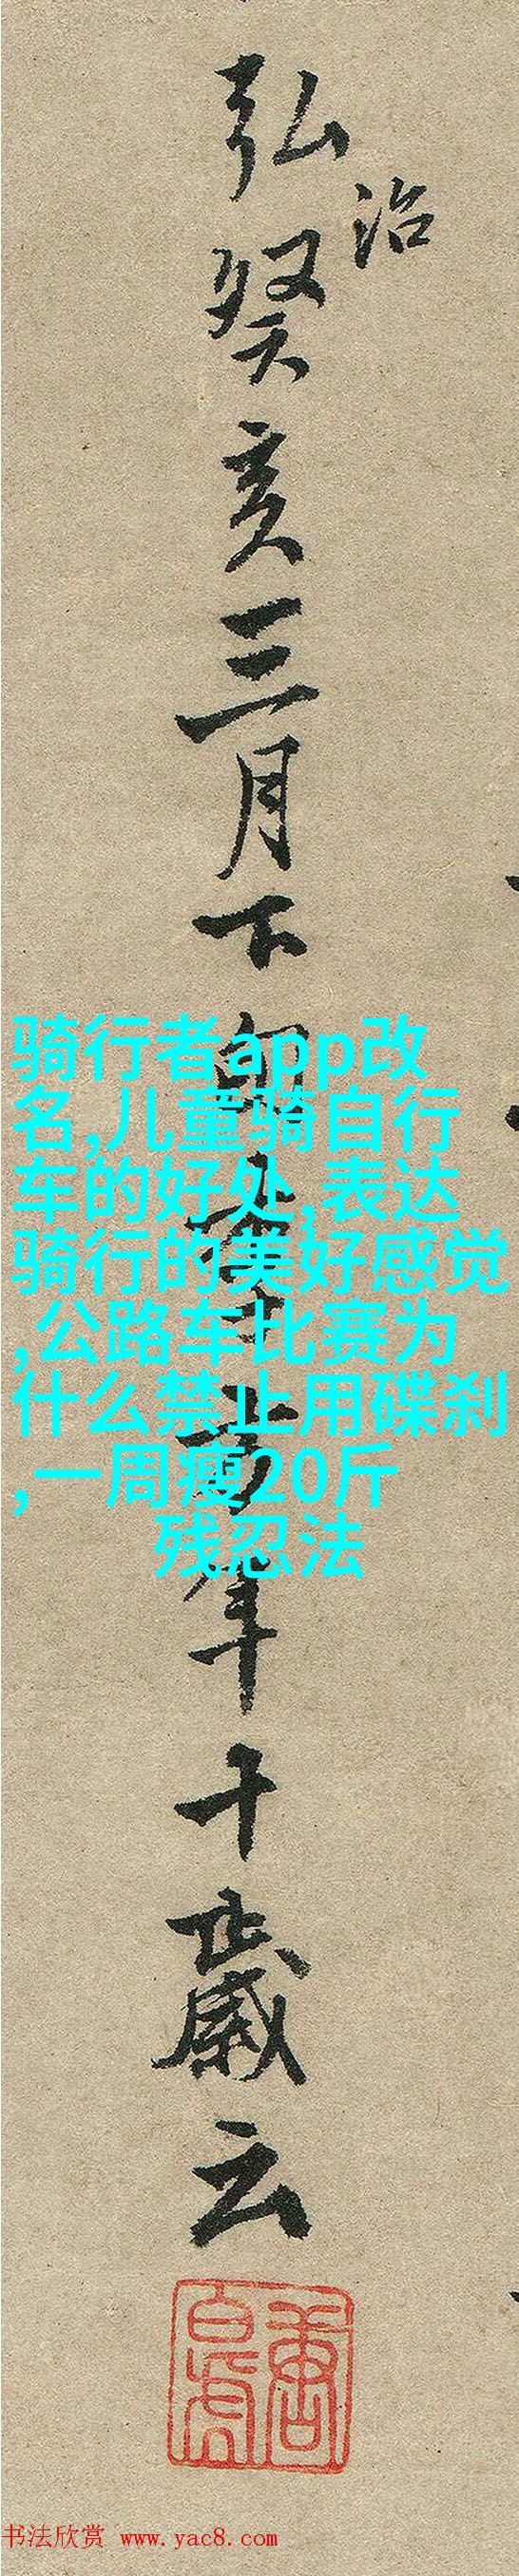 弘治
癸亥三月下旬
年十歲云
骑行者app改
名,儿童骑自行
车的好处,表达
骑行的美好感觉
,公路车比赛为
什么禁止用碟刹
,一周瘦20斤
残忍法
书法欣赏 www.yac8.com